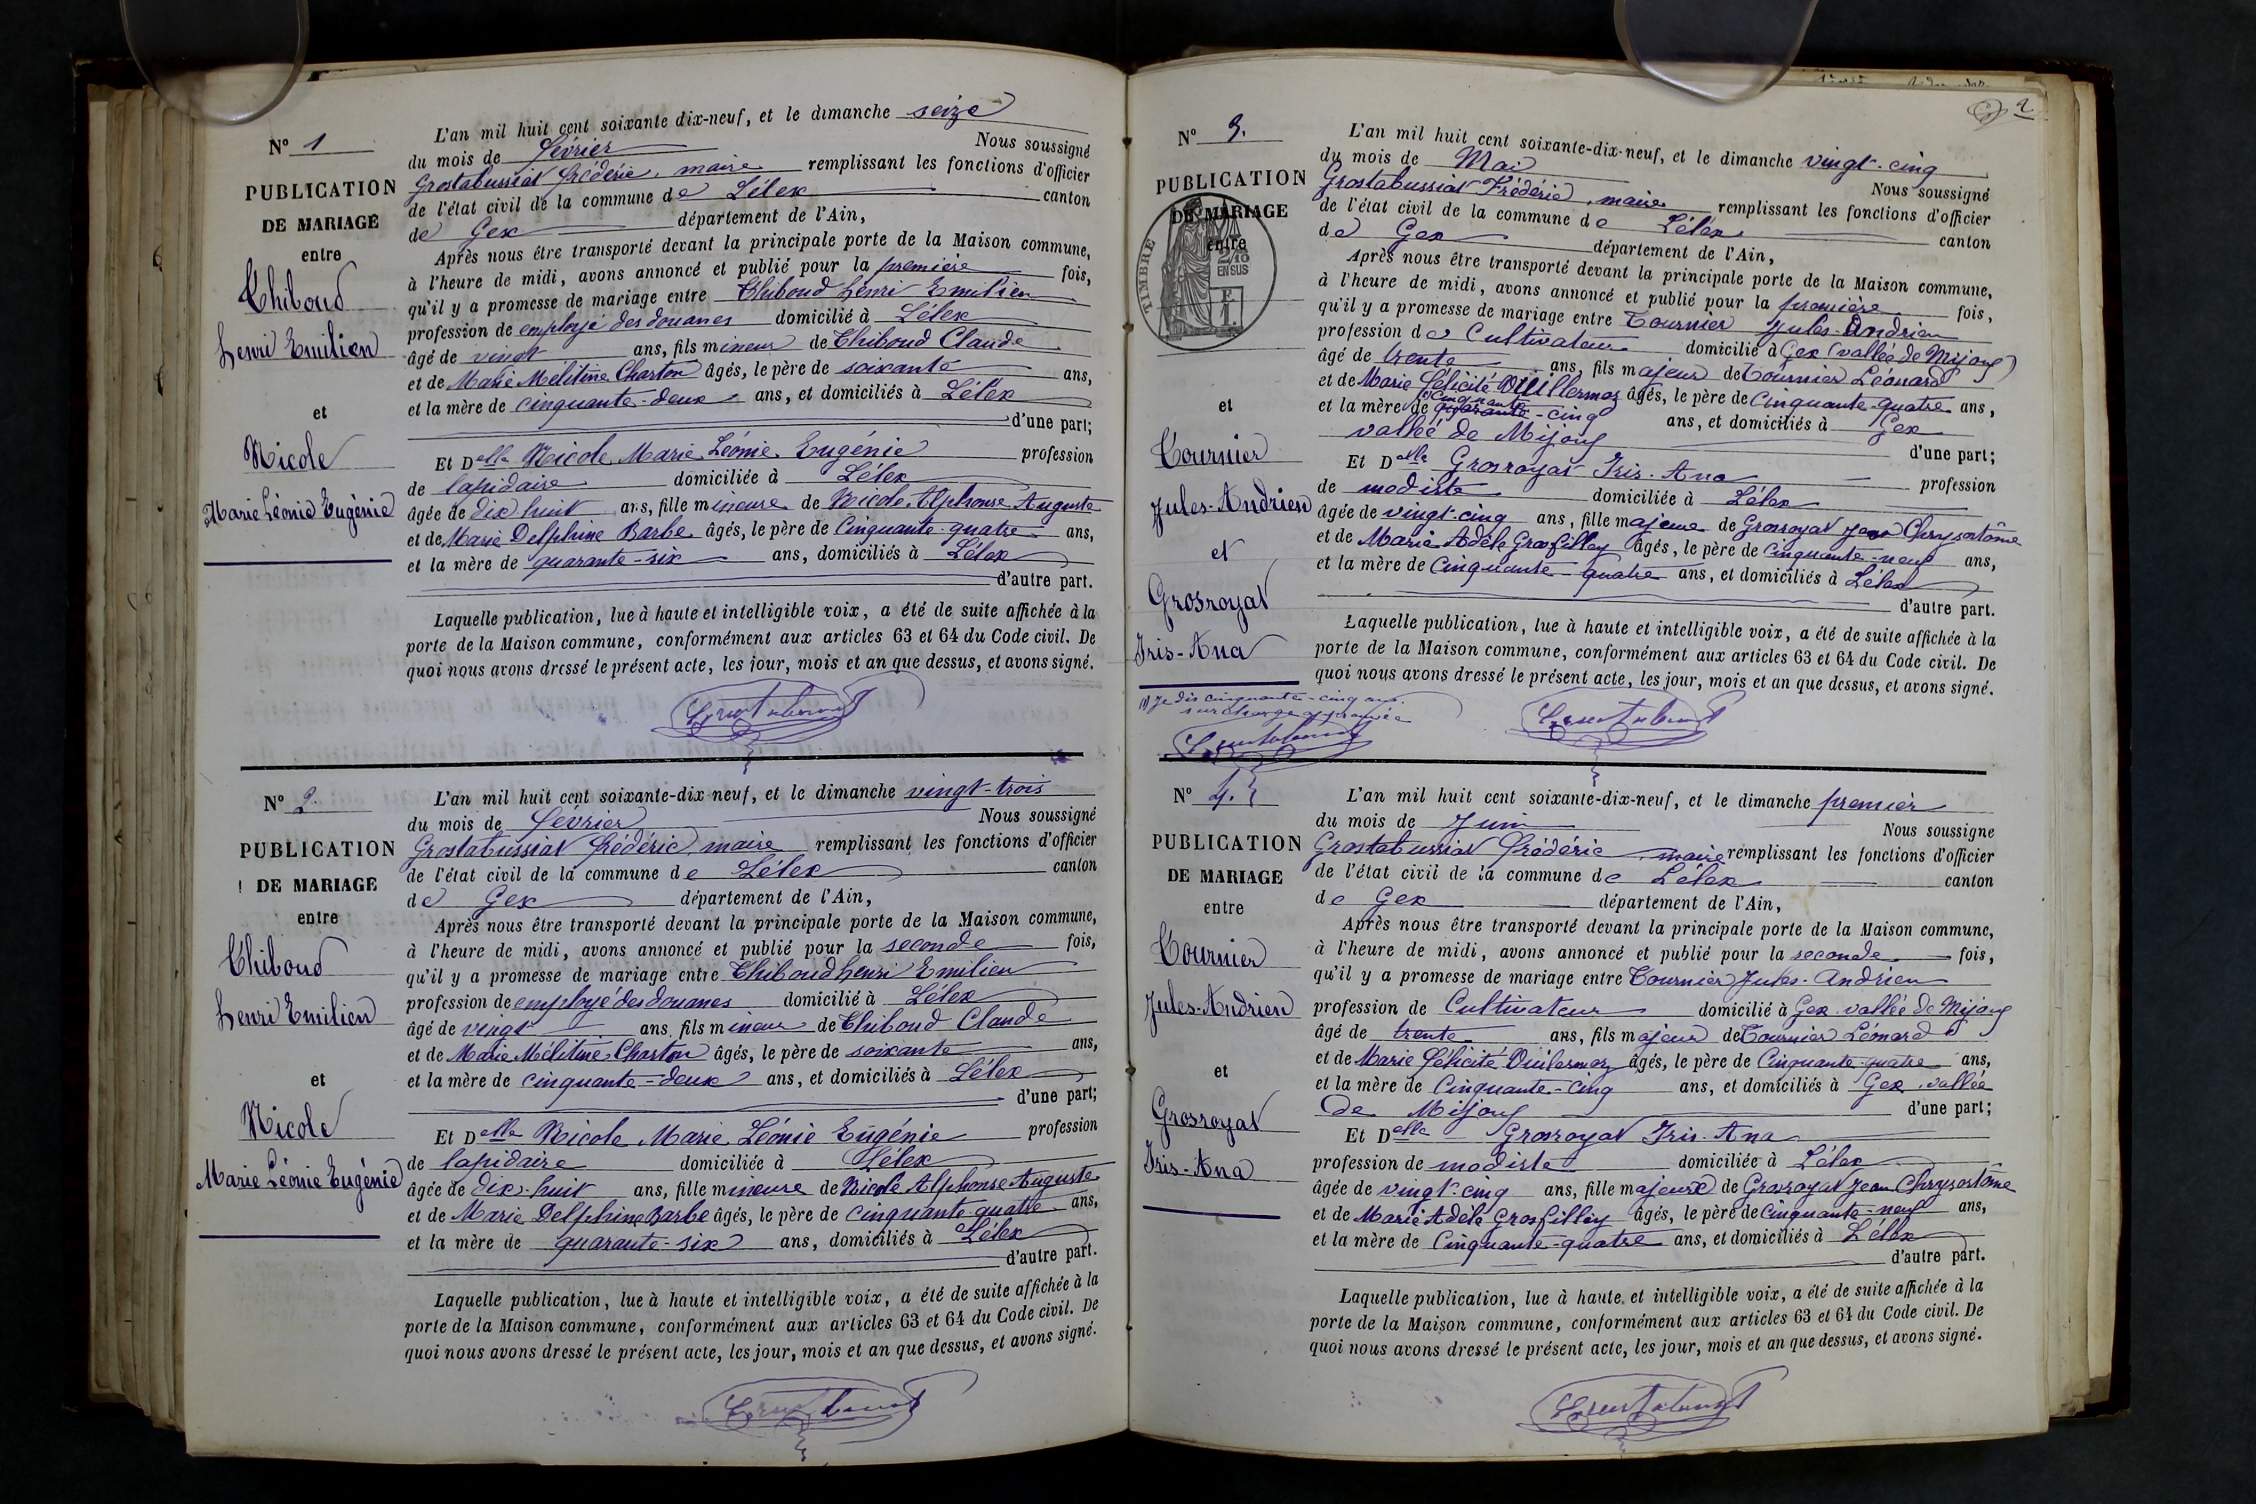 N° 1
PUBLICATION
DE MARIAGE
entre
Thiboud
henri Emilien
et
Nicole
Marie Léonie Eugénie
L'an mil huit cent soixante dix-neuf, et le dimanche seize
du mois de février Nous soussigné
Grostabussiat frédéric, maire remplissant les fonctions d'officier
de l'état civil de la commune de Lélex canton
de Gex département de l'Ain,
Après nous être transporté devant la principale porte de la Maison commune,
à l'heure de midi, avons annoncé et publié pour la première fois,
qu'il y a promesse de mariage entre Thiboud henri Emilien
profession de employé des douanes domicilié à Lélex
âgé de vingt ans, fils mineur de Thiboud Claude
et de Marie Mélitine Charton âgés, le père de soixante ans,
et la mère de cinquante-deux ans, et domiciliés à Lélex
d'une part;
Et Delle Nicole Marie Léonie Eugénie profession
de lapidaire domiciliée à Lélex
âgée de dix huit ans, fille mineure de Nicole Alphonse Auguste
et de Marie Delphine Barbe âgés, le père de Cinquante-quatre ans,
et la mère de quarante-six ans, domiciliés à Lélex
d'autre part.
Laquelle publication, lue à haute et intelligible voix, a été de suite affichée à la
porte de la Maison commune, conformément aux articles 63 et 64 du Code civil. De
quoi nous avons dressé le présent acte, les jour, mois et an que dessus, et avons signé.
N° 2.
PUBLICATION
DE MARIAGE
entre
Thiboud
henri Emilien
et
Nicole
Marie Léonie Eugénie
L'an mil huit cent soixante-dix neuf, et le dimanche vingt-trois
du mois de février Nous soussigné
Grostabussiat frédéric, maire remplissant les fonctions d'officier
de l'état civil de la commune de Lélex canton
de Gex département de l'Ain,
Après nous être transporté devant la principale porte de la Maison commune,
à l'heure de midi, avons annoncé et publié pour la seconde fois,
qu'il y a promesse de mariage entre Thiboud henri Emilien
profession de employé des douanes domicilié à Lélex
âgé de vingt ans, fils mineur de Thiboud Claude
et de Marie Mélitine Charton âgés, le père de soixante ans,
et la mère de cinquante-deux ans, et domiciliés à Lélex
d'une part;
Et Delle Nicole Marie Léonie Eugénie profession
de lapidaire domiciliée à Lélex
âgée de dix-huit ans, fille mineure de Nicole Alphonse Auguste
et de Marie Delphine Barbe âgés, le père de cinquante-quatre ans,
et la mère de quarante-six ans, domiciliés à Lélex
d'autre part.
Laquelle publication, lue à haute et intelligible voix, a été de suite affichée à la
porte de la Maison commune, conformément aux articles 63 et 64 du Code civil. De
quoi nous avons dressé le présent acte, les jour, mois et an que dessus, et avons signé.
2
N° 3.
PUBLICATION
DE MARIAGE
entre
TIMBRE
2/10
EN SUS
F.
1.
et
Tournier
Jules-Andrien
et
Grosroyat
Iris-Ana
(1) Je dis cinquante-cinq ans.
surcharge approuvée
L'an mil huit cent soixante-dix-neuf, et le dimanche vingt-cinq
du mois de Mai Nous soussigné
Grostabussiat Frédéric, maire remplissant les fonctions d'officier
de l'état civil de la commune de Lélex canton
de Gex département de l'Ain,
Après nous être transporté devant la principale porte de la Maison commune,
à l'heure de midi, avons annoncé et publié pour la première fois,
qu'il y a promesse de mariage entre Tournier Jules-Andrien
profession de Cultivateur domicilié à Gex (vallée de Mijoux)
âgé de trente ans, fils majeur de Tournier Léonard
et de Marie Félicité Duillermoz âgés, le père de Cinquante-quatre ans,
(1) cinquante
et la mère de quarante-cinq ans, et domiciliés à Gex
vallée de Mijoux d'une part;
Et Delle Grosroyat Iris-Ana profession
de modiste domiciliée à Lélex
âgée de vingt-cinq ans, fille majeure de Grosroyat Jean Chrysostôme
et de Marie Adèle Grosfilley âgés, le père de Cinquante-neuf ans,
et la mère de Cinquante-quatre ans, et domiciliés à Lélex
d'autre part.
Laquelle publication, lue à haute et intelligible voix, a été de suite affichée à la
porte de la Maison commune, conformément aux articles 63 et 64 du Code civil. De
quoi nous avons dressé le présent acte, les jour, mois et an que dessus, et avons signé.
N° 4.
PUBLICATION
DE MARIAGE
entre
Tournier
Jules-Andrien
et
Grosroyat
Iris-Ana
L'an mil huit cent soixante-dix-neuf, et le dimanche premier
du mois de Juin Nous soussigné
Grostabussiat frédéric, maire remplissant les fonctions d'officier
de l'état civil de la commune de Lélex canton
de Gex département de l'Ain,
Après nous être transporté devant la principale porte de la Maison commune,
à l'heure de midi, avons annoncé et publié pour la seconde fois,
qu'il y a promesse de mariage entre Tournier Jules-Andrien
profession de Cultivateur domicilié à Gex vallée de Mijoux
âgé de trente ans, fils majeur de Tournier Léonard
et de Marie Félicité Duilermoz âgés, le père de Cinquante-quatre ans,
et la mère de Cinquante-cinq ans, et domiciliés à Gex, vallée
de Mijoux d'une part;
Et Delle Grosroyat Iris-Ana
profession de modiste domiciliée à Lélex
âgée de vingt-cinq ans, fille majeure de Grosroyat Jean Chrysostôme
et de Marie Adèle Grosfilley âgés, le père de Cinquante-neuf ans,
et la mère de Cinquante-quatre ans, et domiciliés à Lélex
d'autre part.
Laquelle publication, lue à haute et intelligible voix, a été de suite affichée à la
porte de la Maison commune, conformément aux articles 63 et 64 du Code civil. De
quoi nous avons dressé le présent acte, les jour, mois et an que dessus, et avons signé.